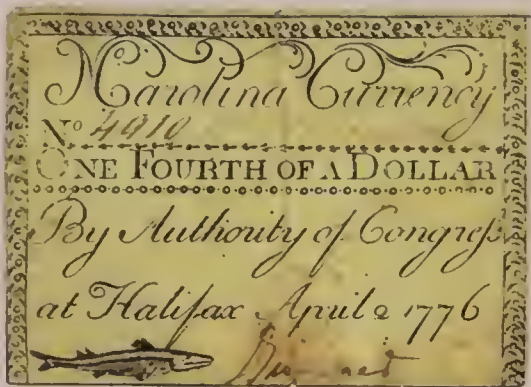 N Carolina Currency
No 4910
ONE FOURTH OF A DOLLAR
By Authority of Congreſs
at Halifax April 2 1776